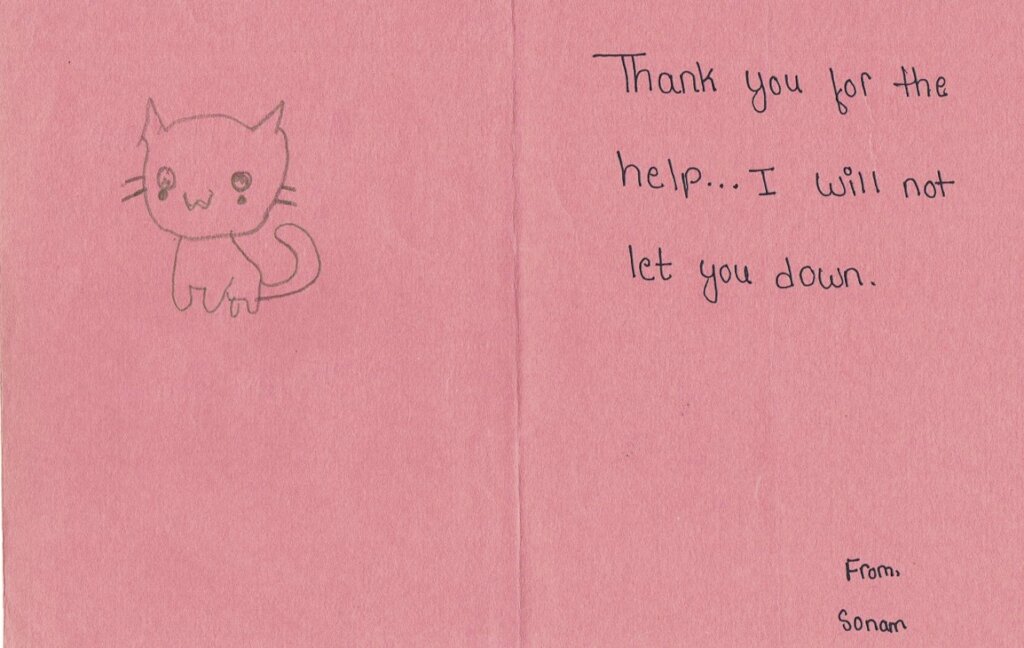 Thank you for the
help... I will not
let you down.
From,
Sonam